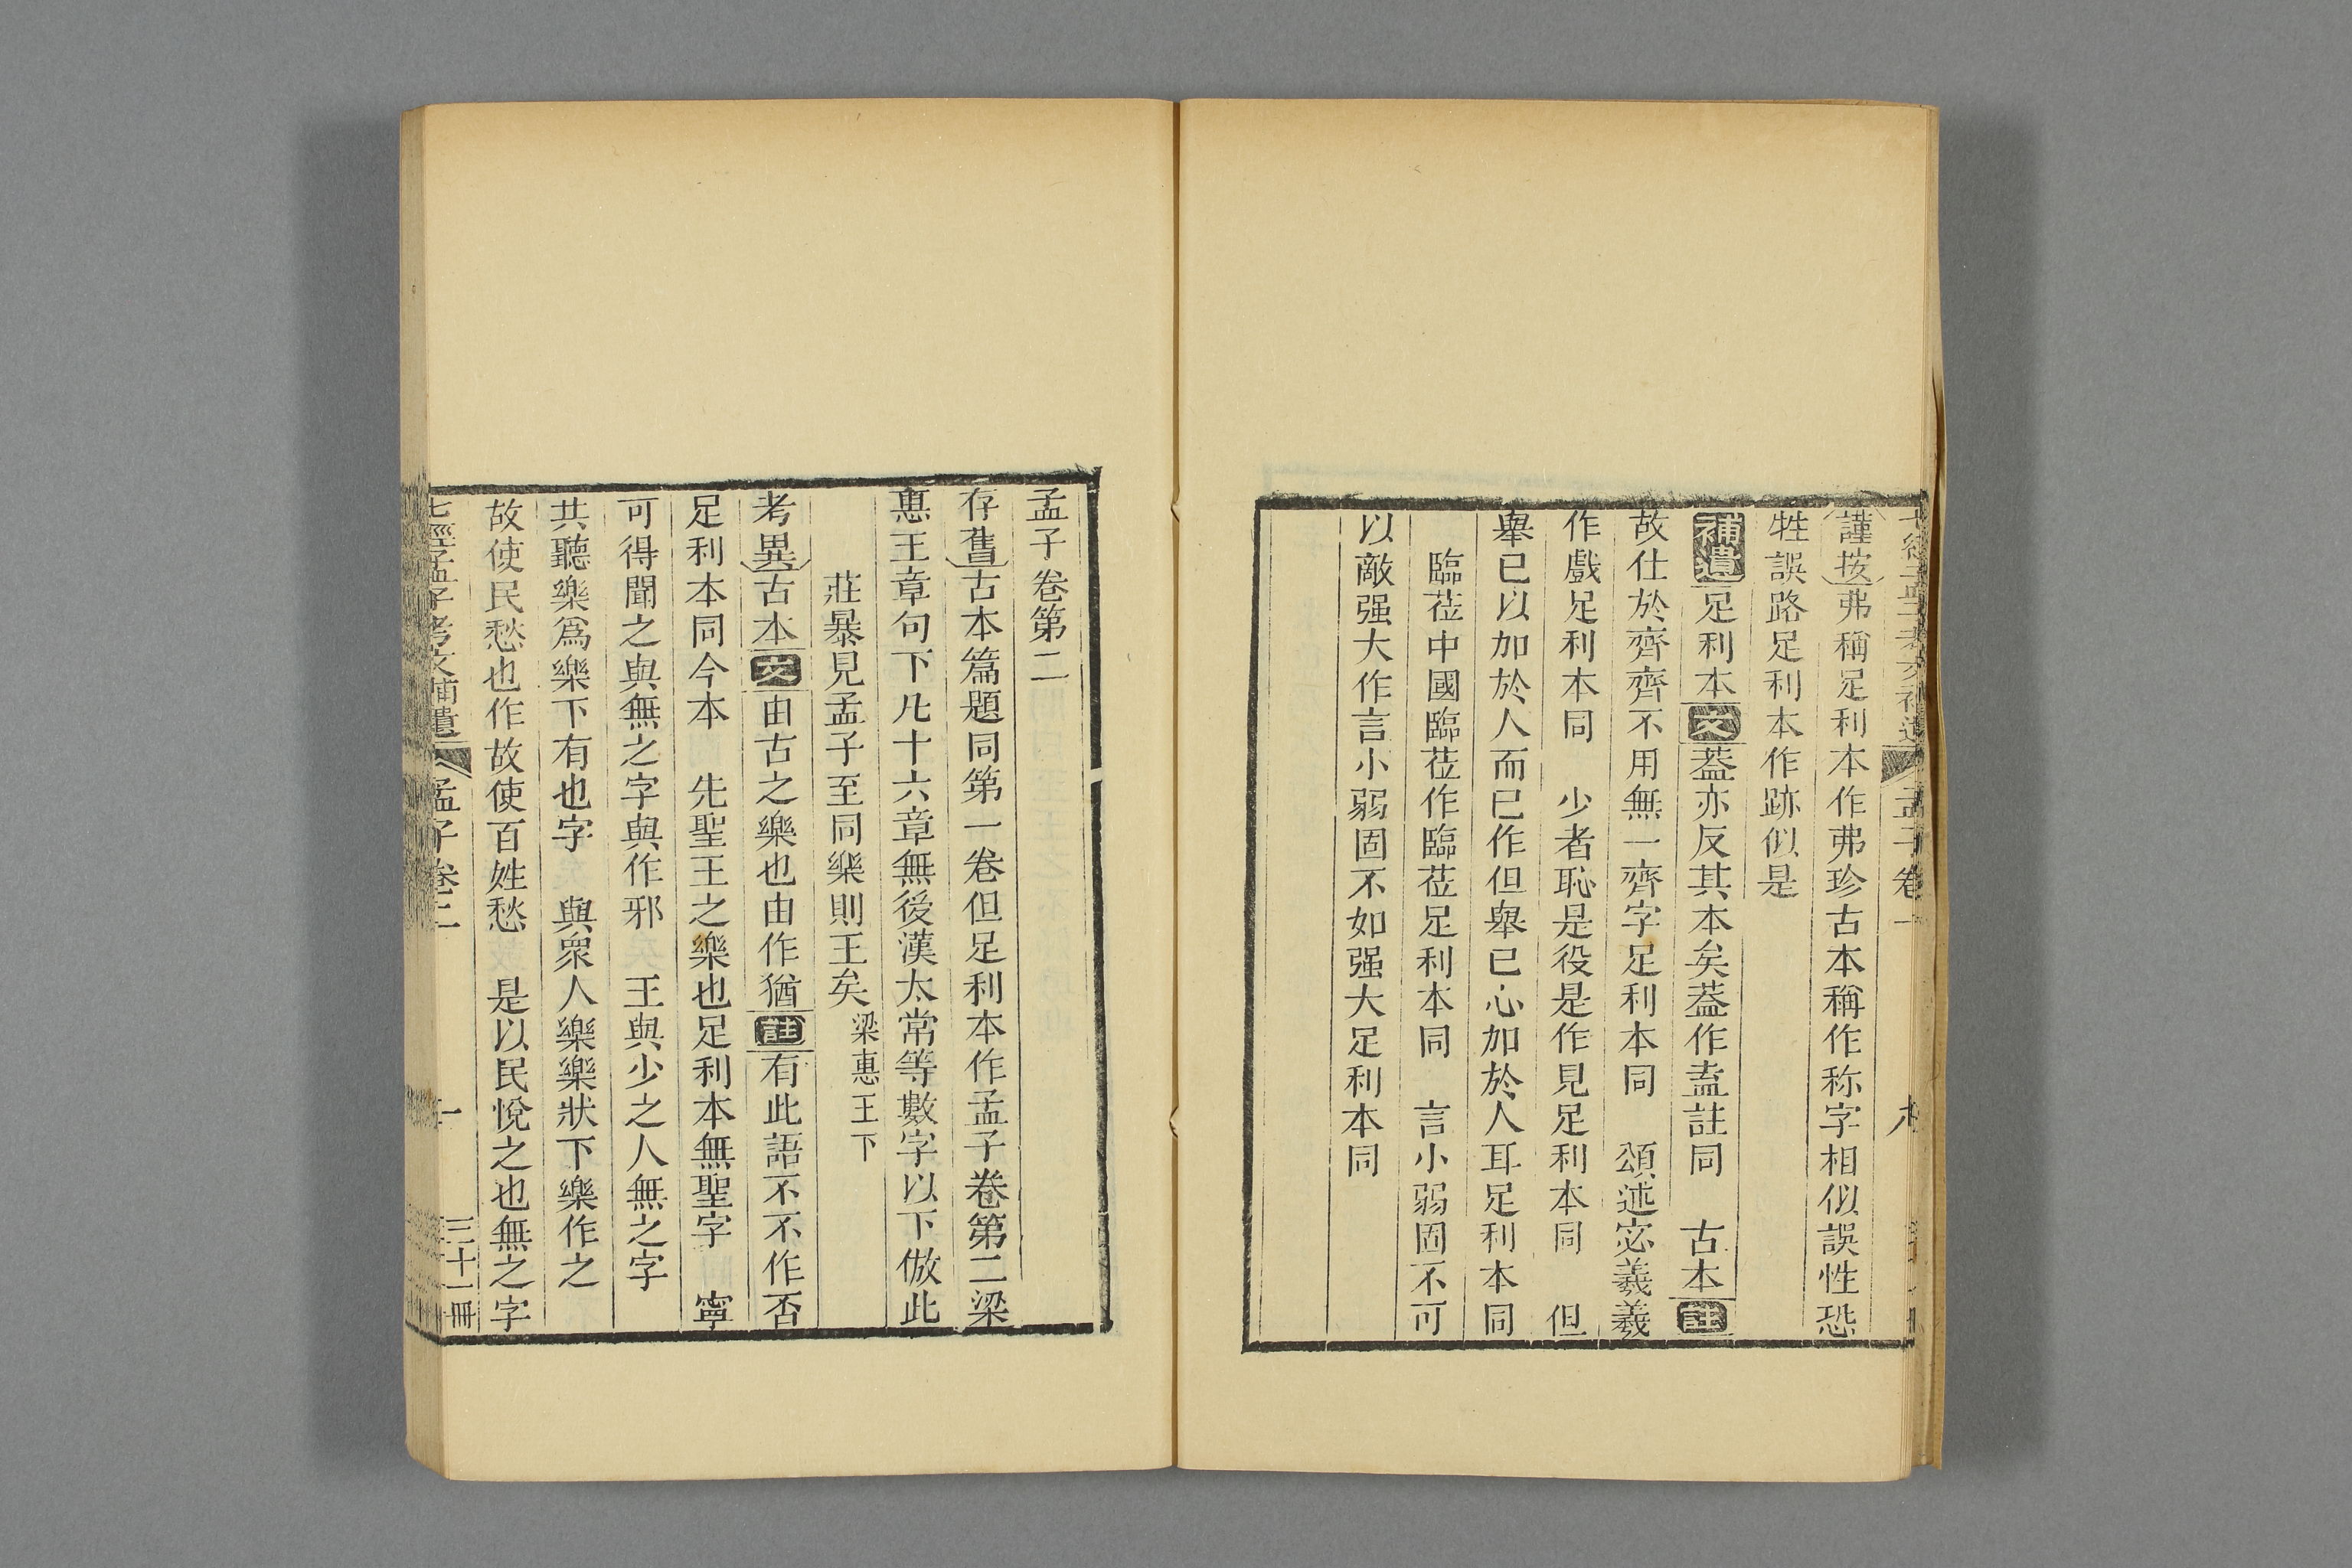 謹按弗稱足利本作弗珍古本稱作称字相似誤性恐
牲誤路足利本作跡似是
補遺足利本文蓋亦反其本矣蓋作盍註同　古本註
故仕於齊齊不用無一齊字足利本同　頌述宓羲羲
作戲足利本同　少者恥是役是作見足利本同　但
舉已以加於人而已作但舉已心加於人耳足利本同
臨莅中國臨莅作臨莅足利本同　言小弱固不可
以敵强大作言小弱固不如强大足利本同
孟子卷第二
存舊古本篇題同第一卷但足利本作孟子卷第二梁
惠王章句下凡十六章無後漢太常等數字以下倣此
莊暴見孟子至同樂則王矣梁惠王下
考異古本文由古之樂也由作猶註有此語不不作否
足利本同今本　先聖王之樂也足利本無聖字　寧
可得聞之與無之字與作邪　王與少之人無之字
共聽樂爲樂下有也字　與衆人樂樂狀下樂作之
故使民愁也作故使百姓愁　是以民悅之也無之字
七經孟子考文補遺　孟子卷二　一　三十一冊